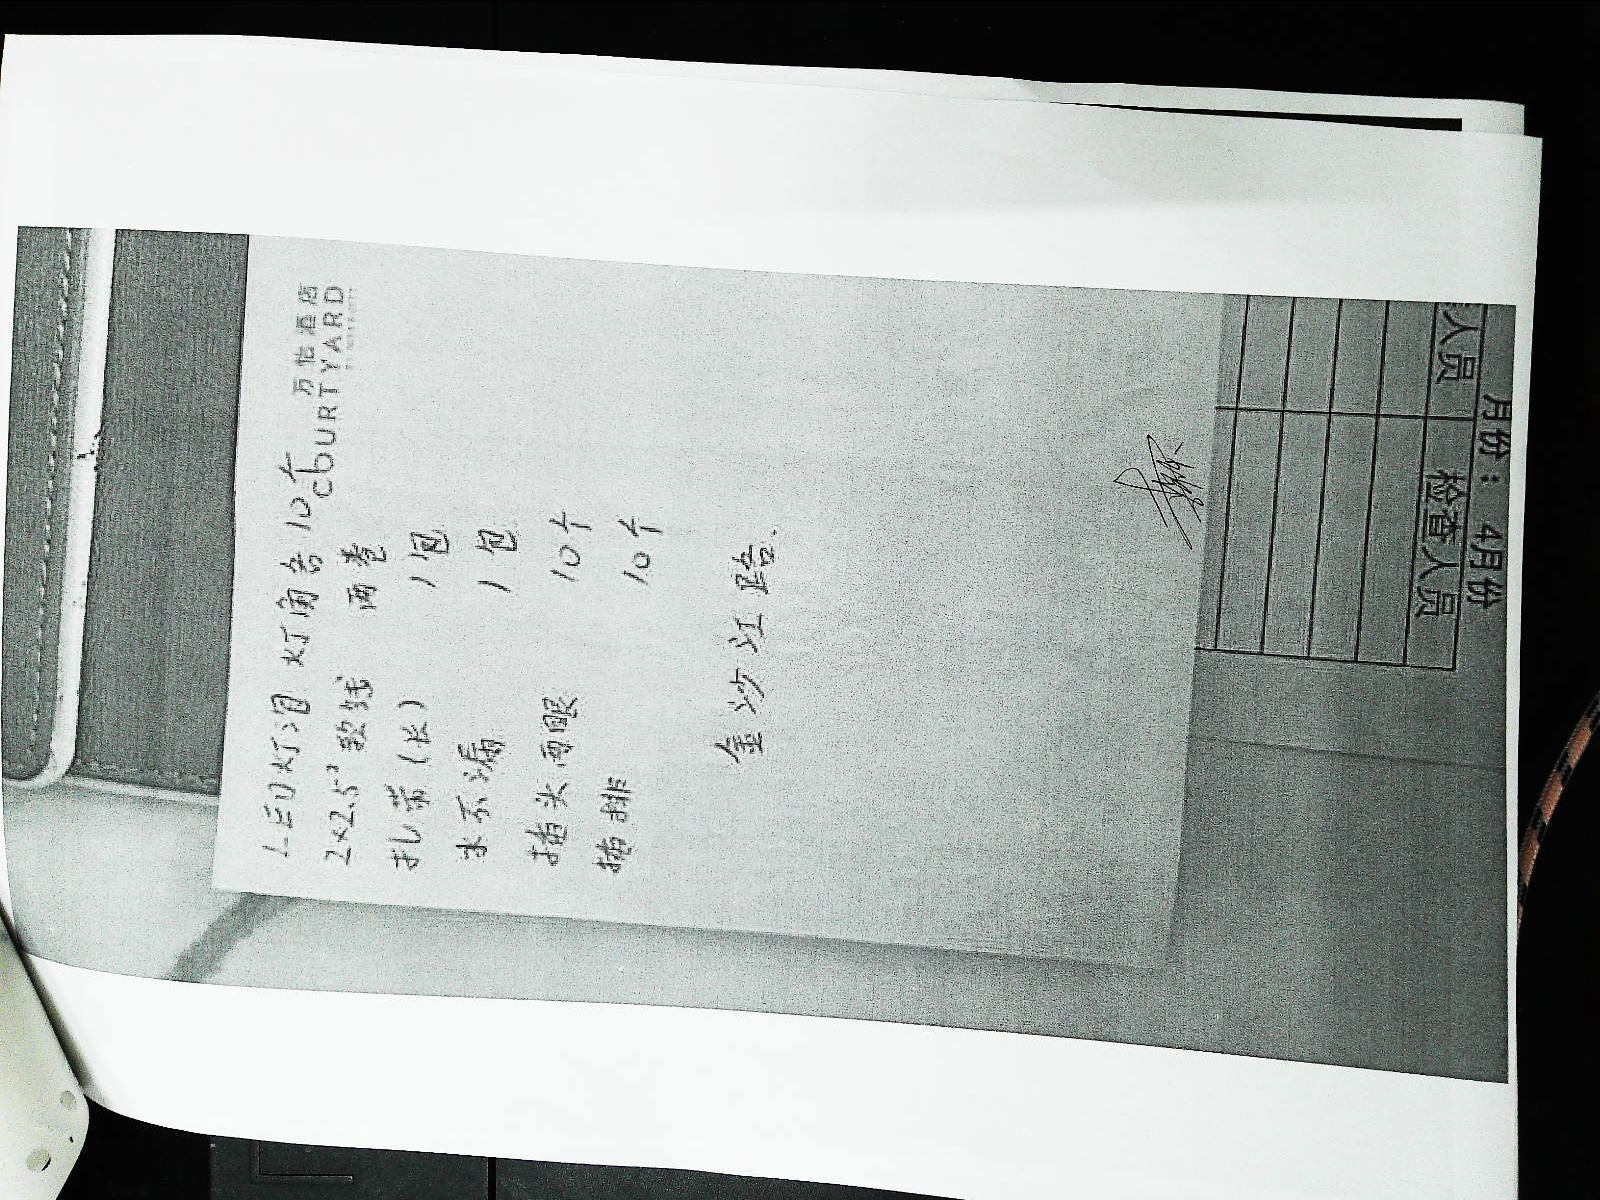 万怡酒店
COURTYARD
LED灯泡 灯角各 10个
2×2.5² 软线 两卷
扎带(长) 1包
水不漏 1包
插头两眼 10个
插排 10个
金沙江路.
月份: 4月份
检查人员
人员